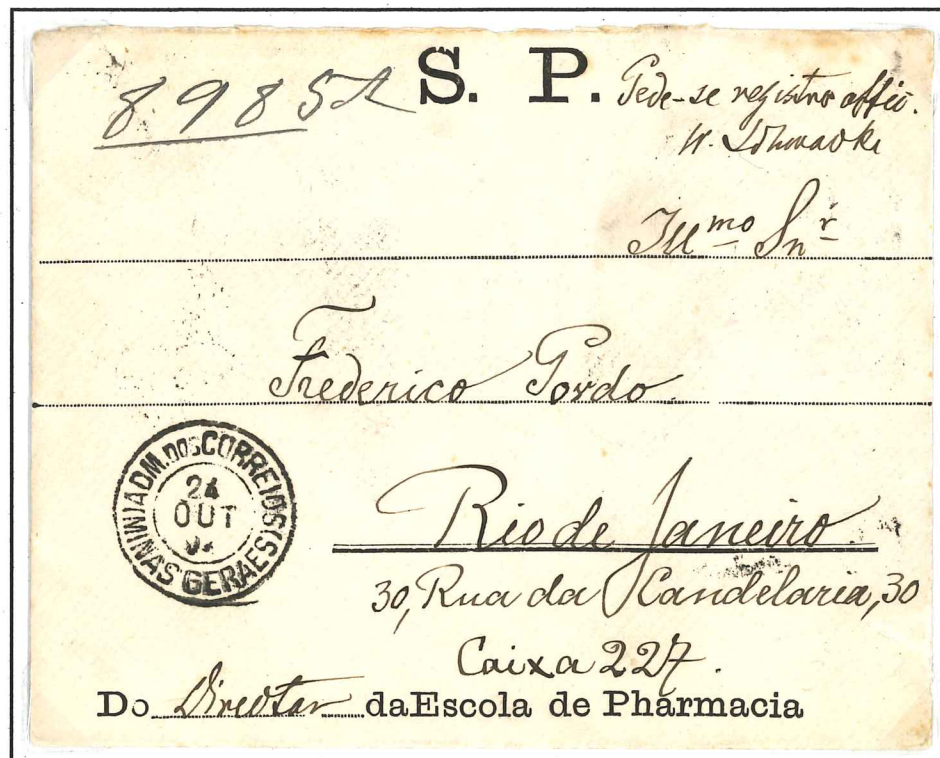 S. P.
8985
Pede-se registro offic.
W.
Illmo Snr
Frederico Gordo.
ADM. DOS CORREIOS (MINAS GERAES)
24
OUT
Rio de Janeiro.
30, Rua da Kandelaria, 30
Caixa 227.
Do Director da Escola de Pharmacia